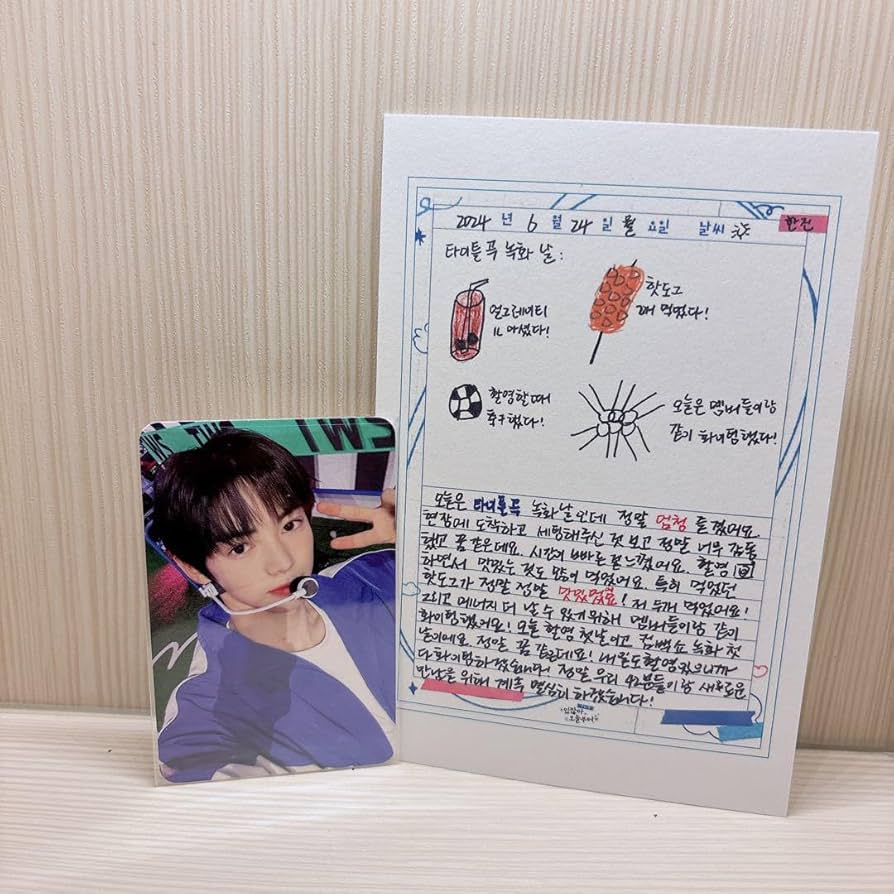 2024 년 6 월 24 일 월 요일 날씨 한진
타이틀곡 녹화 날:
얼그레이티
마셨다!
핫도그
2개 먹었다!
촬영할때
축구했다!
오늘은 멤버들이랑
같이 화이팅했다!
오늘은 타이틀곡 녹화날인데 정말 엄청 즐겼어요.
현장에 도착하고 세팅해주신 것 보고 정말 너무 감동
했고 꿈 같은데요. 시간이 빠른 걸 느꼈어요. 촬영
하면서 맛있는 것도 많이 먹었어요. 특히 먹었던
핫도그가 정말 정말 맛있었요! 저 두개 먹었어요!
그리고 에너지 더 날 수 있게 위해 멤버들이랑 같이
화이팅했어요! 오늘 촬영 첫날이고 컴백쇼 녹화 첫
날이에요. 정말 꿈 같은데요! 내일도 촬영 있으니까
다 화이팅하겠습니다! 정말 우리 42분들이랑 새로운
만남을 위해 계속 열심히 하겠습니다!
입장아,
오늘부터
TWS
TWS